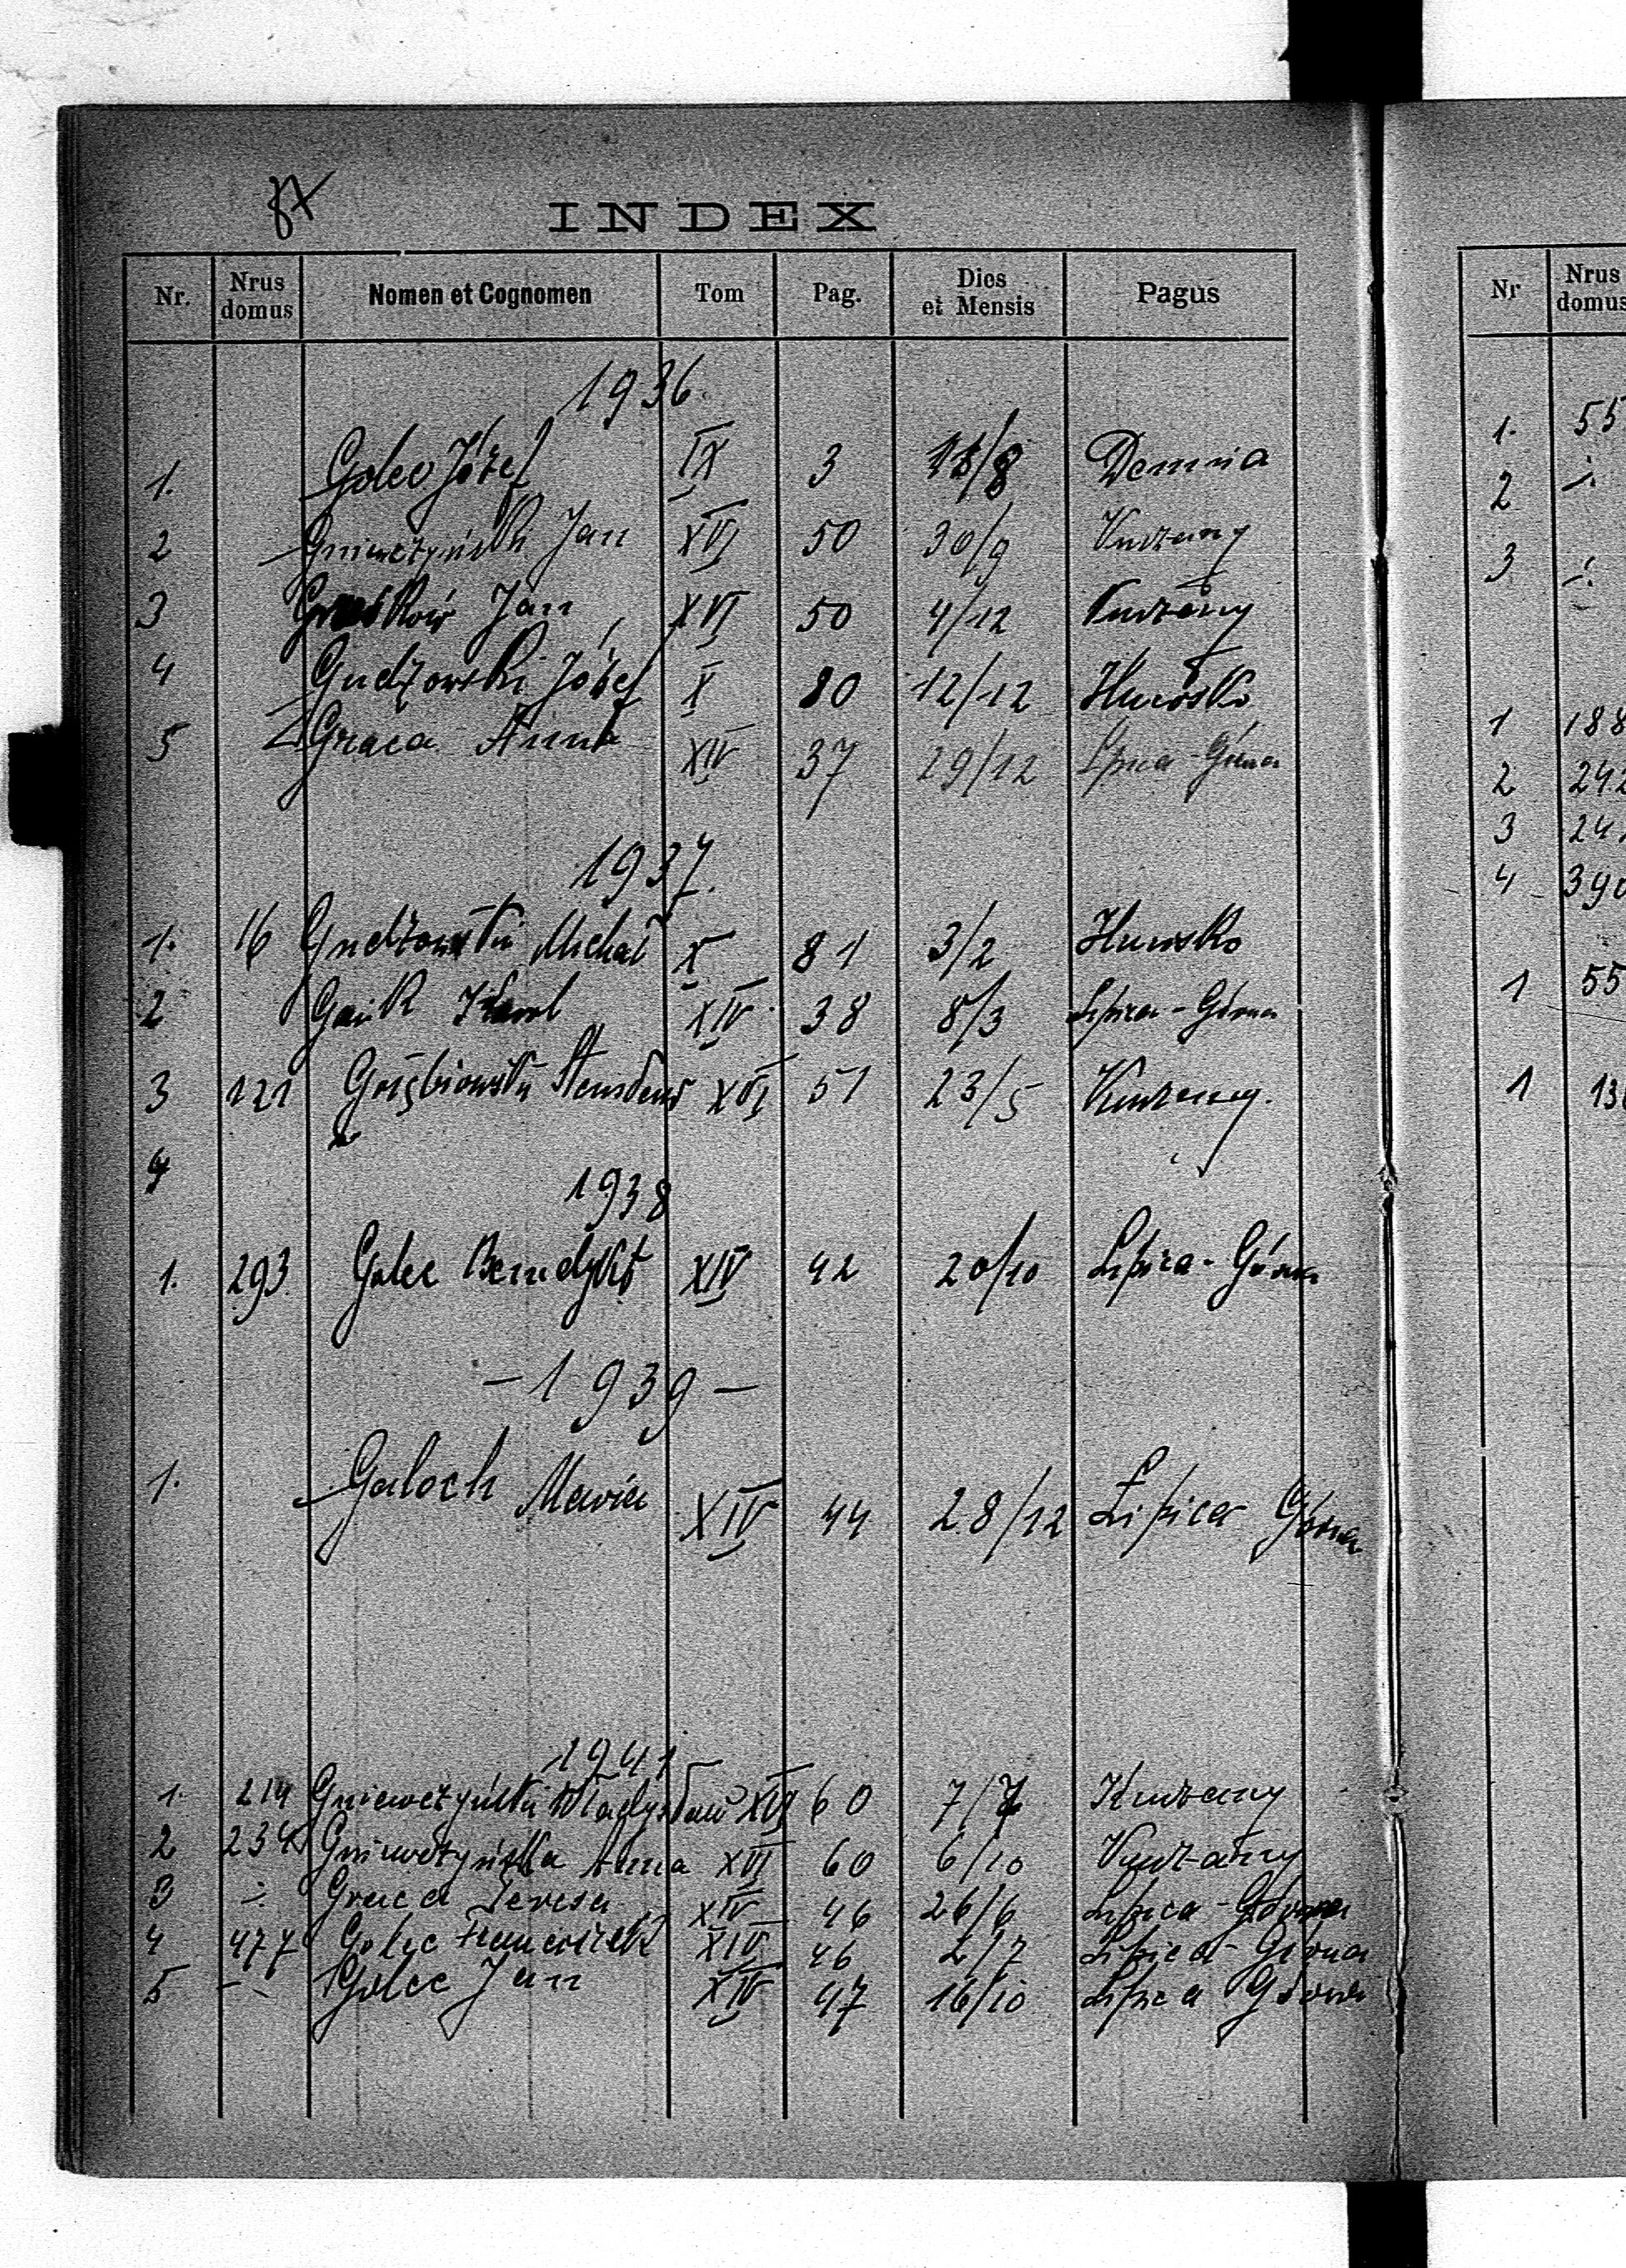 37
INDEX
Nr. Nrus domus Nomen et Cognomen Tom Pag. Dies et Mensis Pagus
1936.
1. Golec Józef IX 3 15/8 Demnia
2 Gniewczyński Jan XVI 50 30/9 Kurzany
3 Jan XVI 50 4/12 Kurzany
4 Gudzowski Józef X 80 12/12 Hucisko
5 Graca Anna XIV 37 29/12 Lipica-Górna
1937.
1. 16 Gudzowski Michał X 81 3/2 Hucisko
2 Gaik Karol XIV 38 8/3 Lipica-Górna
3 121 XVI 51 23/5 Kurzany.
4
1938
1. 293 Golec Benedykt XIV 42 20/10 Lipica-Górna
- 1939 -
1. Galoch Maria XIV 44 28/12 Lipica Górna
1941
1. 214 Gniewczyński Władysław XVI 60 7/7 Kurzany
2 234 Gniewczyńska Anna XVI 60 6/10 Kurzany
3 ÷ Graca Teresa XIV 46 26/6 Lipica-Górna
4 477 Golec Franciszek XIV 46 2/7 Lipica-Górna
5 - Golec Jan XIV 47 16/10 Lipica Górna
Nr Nrus domus
1. 55
2 ÷
3 ÷
1 188
2 242
3 24
4 390
1 55
1 13